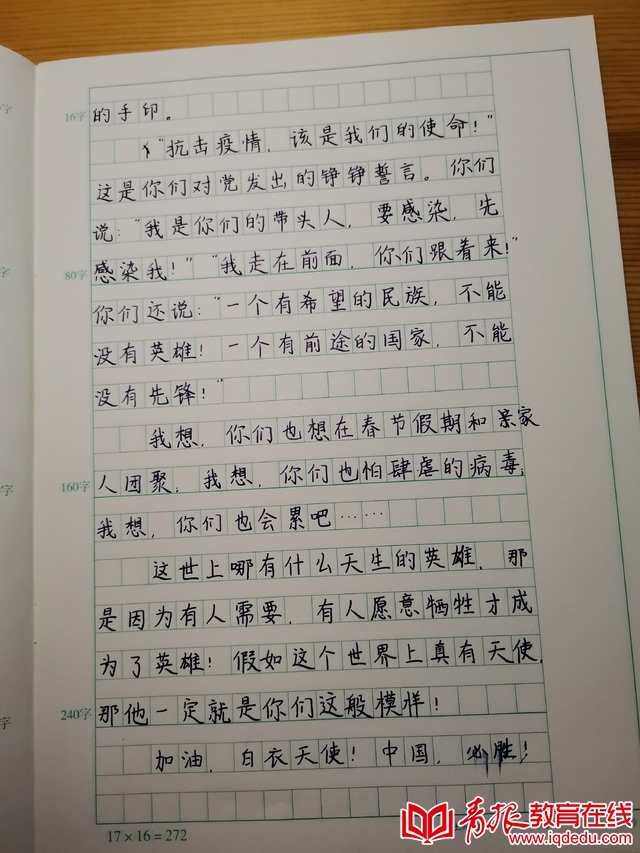 16字
的手印。
“抗击疫情，该是我们的使命！”
这是你们对党发出的铮铮誓言。你们
说：“我是你们的带头人，要感染，先
80字
感染我！”“我走在前面，你们跟着来！”
你们还说：“一个有希望的民族，不能
没有英雄！一个有前途的国家，不能
没有先锋！”
我想，你们也想在春节假期和亲家
160字
人团聚；我想，你们也怕肆虐的病毒；
我想，你们也会累吧……
这世上哪有什么天生的英雄，那
是因为有人需要，有人愿意牺牲才成
为了英雄！假如这个世界上真有天使，
240字
那他一定就是你们这般模样！
加油，白衣天使！中国，必胜！
17×16=272
青报教育在线
www.iqdedu.com